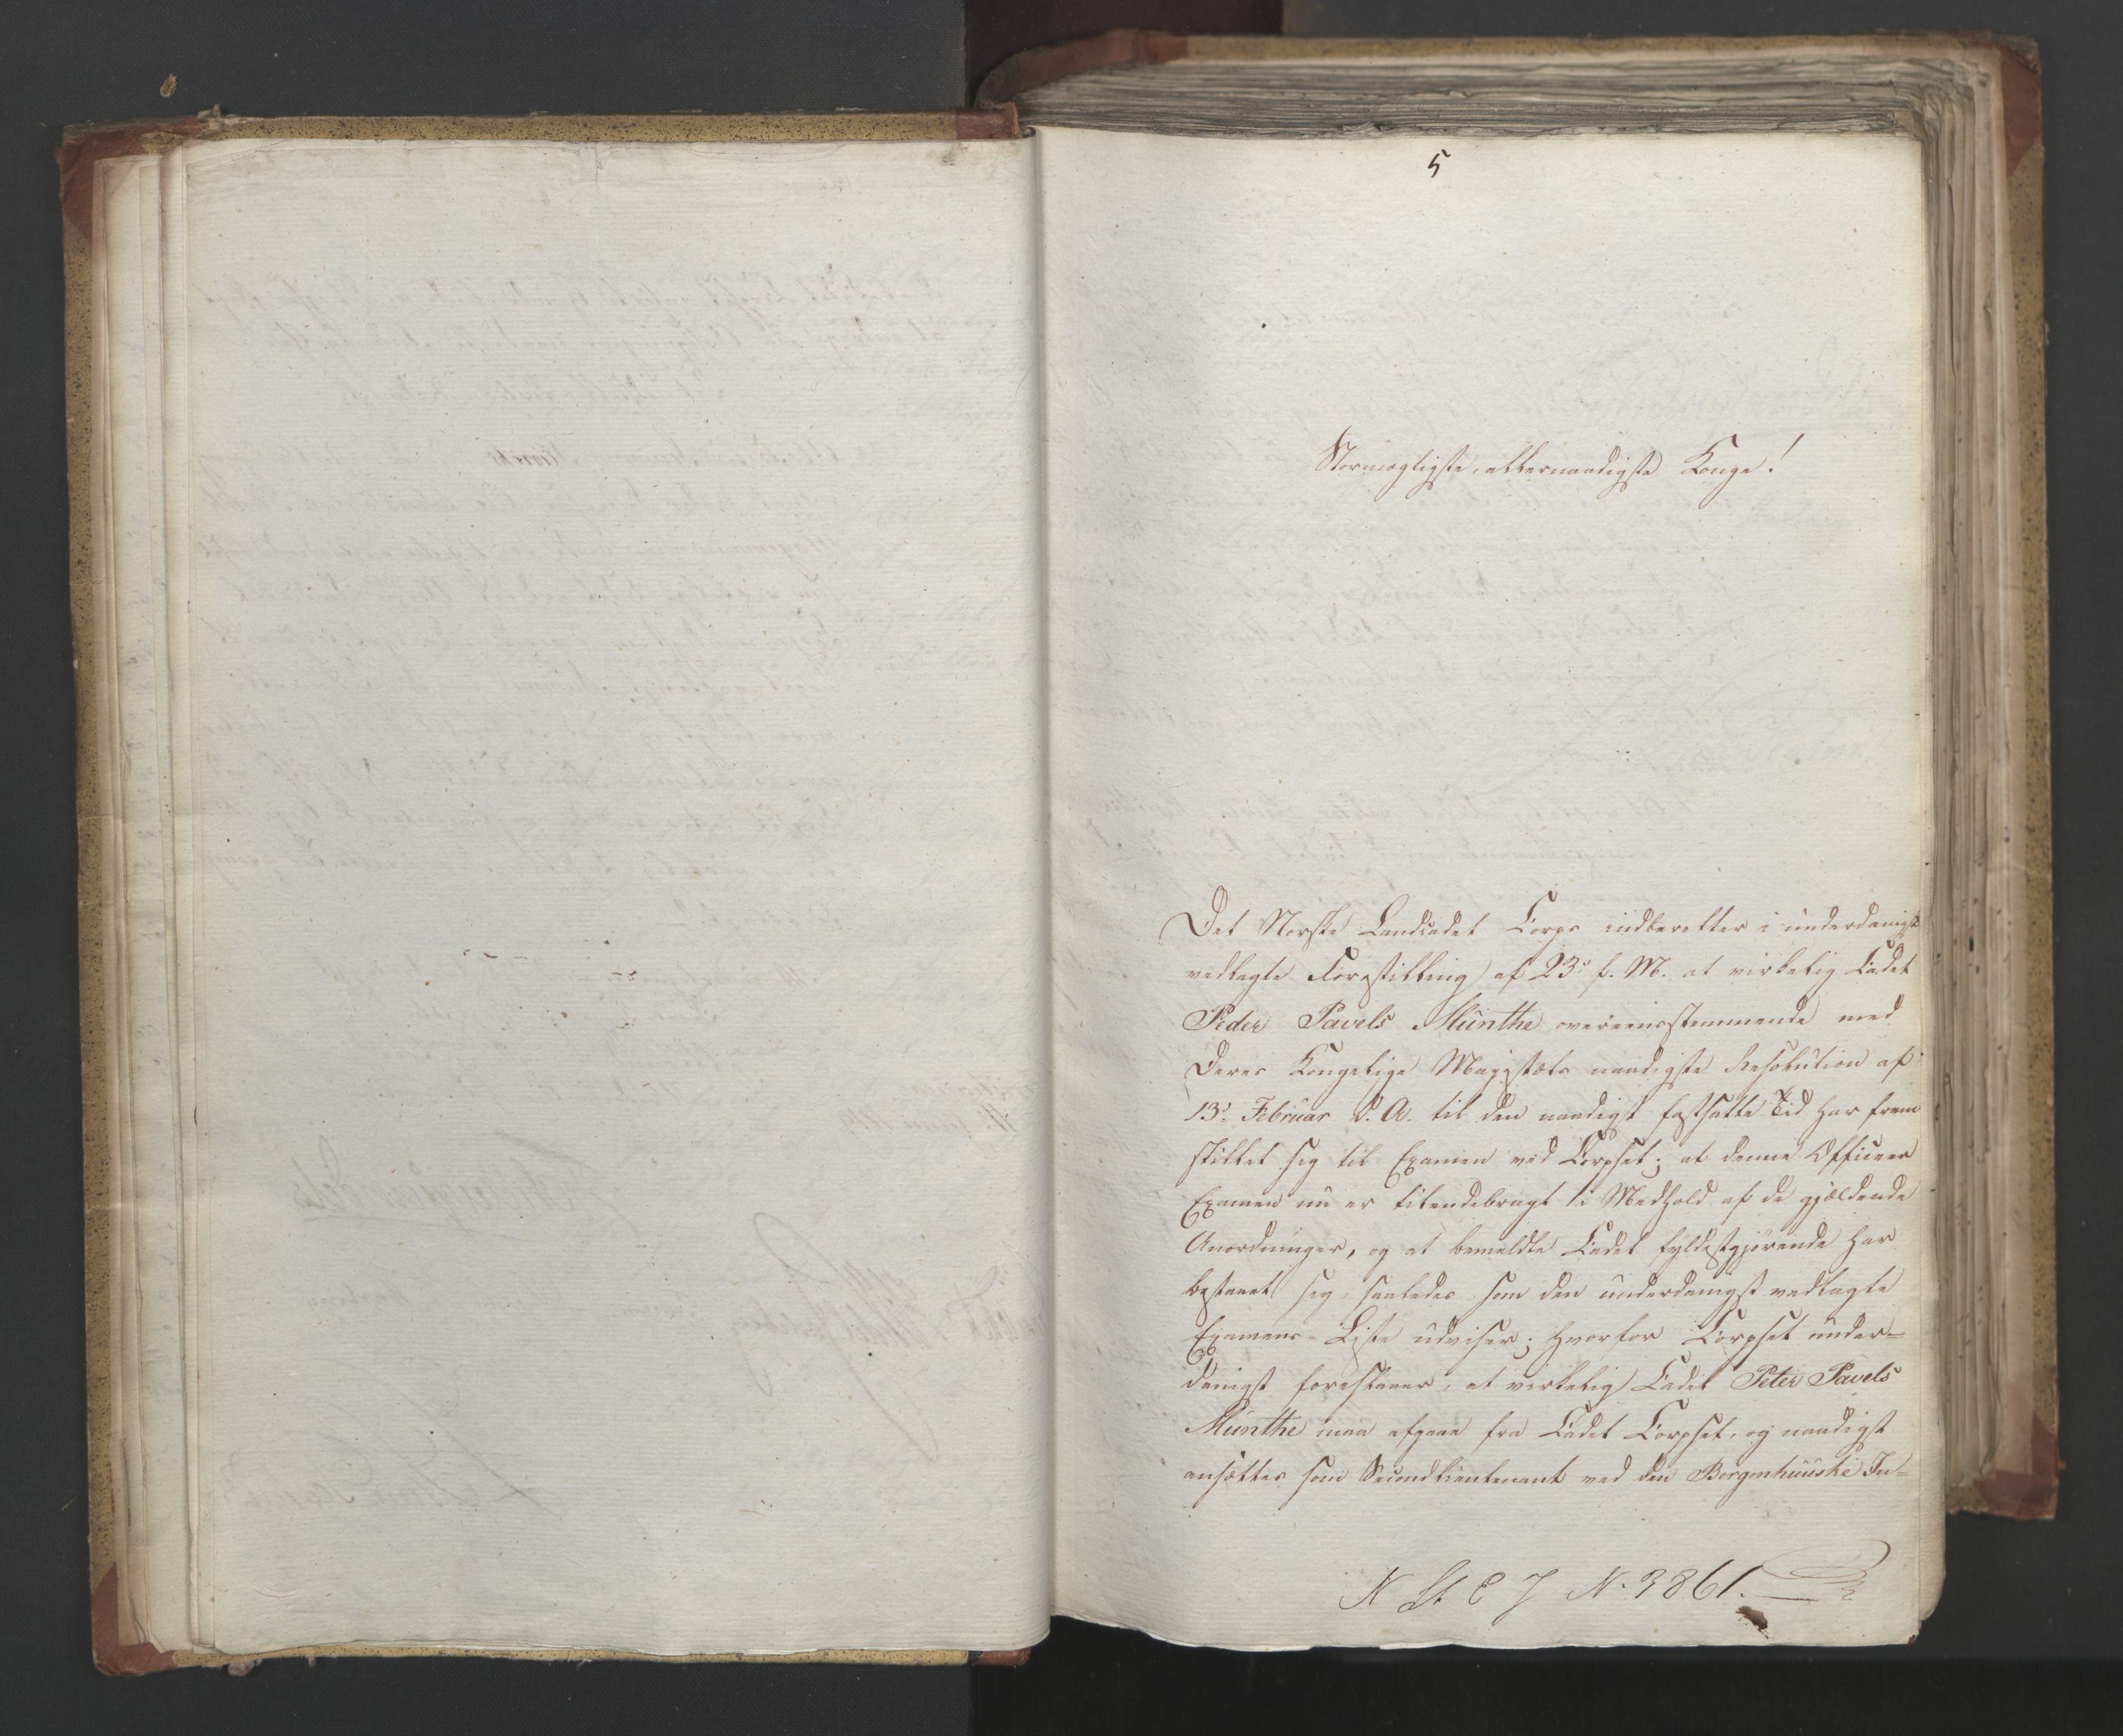 5
Stormægtigste, allernaadigste Konge!
Det Norske Landcadet Corps indberetter i underdanigst
vedlagte Forestilling af 23de f. M. at virkelig Cadet
Peder Pavels Münthe overeensstemmende med
Deres Kongelige Majestæts naadigste Resolution af
13de Februar d. A. til den naadigst fastsatte Tid har frem
stillet sig til Examen ved Corpset; at denne Officeer
Examen nu er tilendebragt i Medhold af de gjældende
Anordninger, og at bemeldte Cadet fyldestgjørende har
bestaaet sig, saaledes som den underdanigst vedlagte
Examens-Liste udviser; hvorfor Corpset under=
danigst foreslaaer, at virkelig Cadet Peter Pavels
Münthe maa afgaae fra Cadet Corpset, og naadigst
ansættes som Secondlieutenant ved den Bergenhuuske In=
N St C J N. 3861.